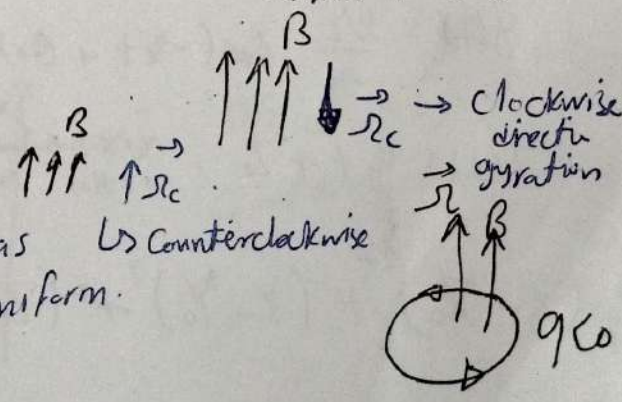 B
Ωc → Clockwise
directn
gyration
B
Ωc
as ↳ Counterclockwise
niform.
Ω B
q<0